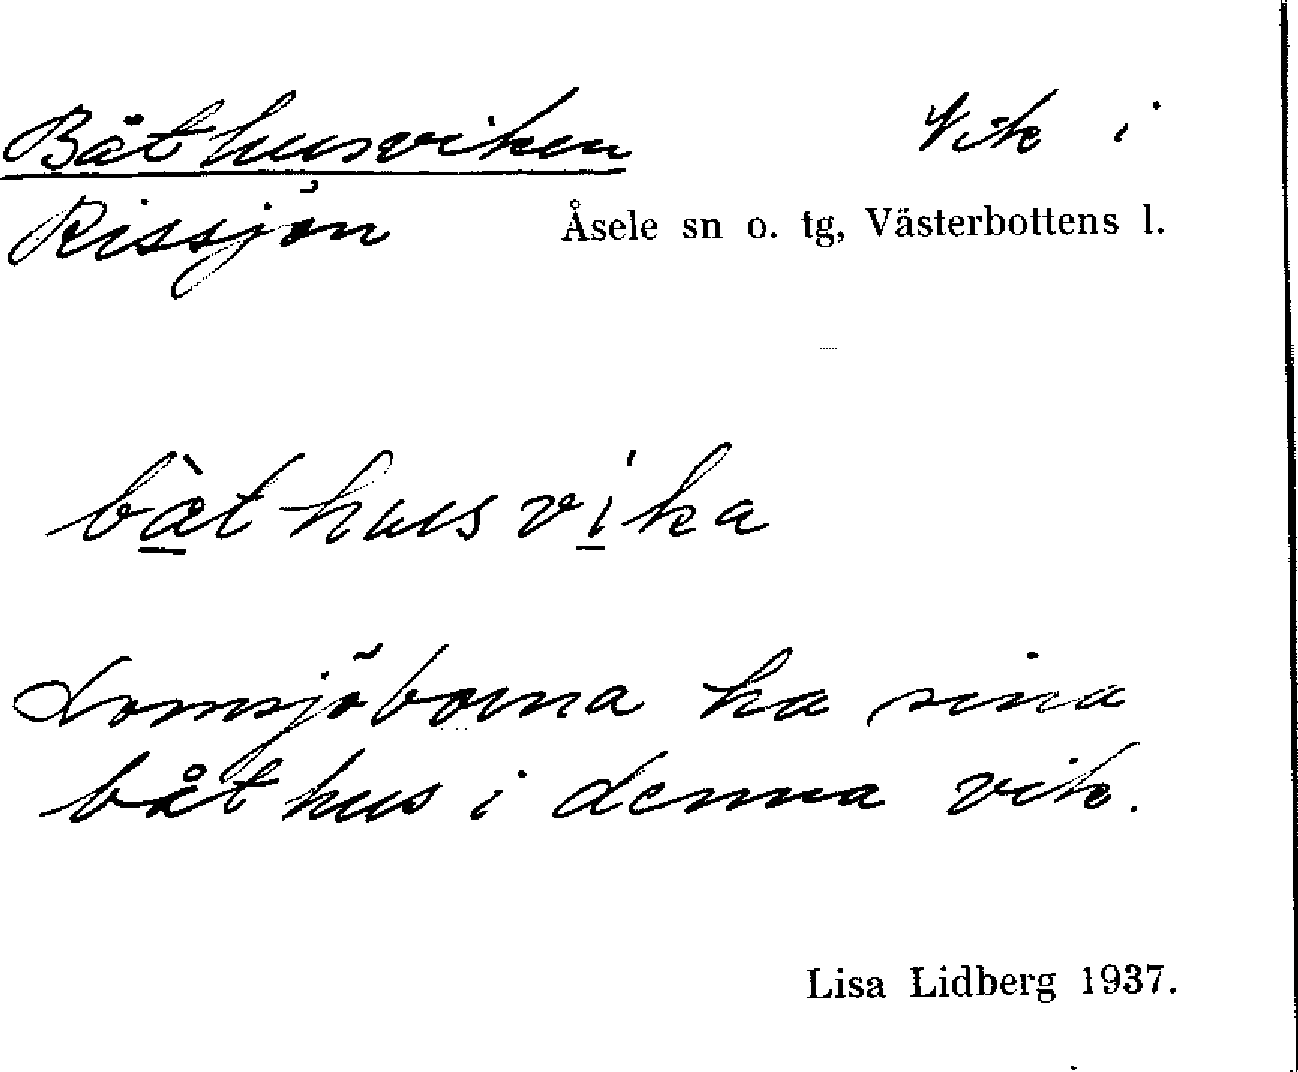 Båthusviken Vik i
Rissjön Åsele sn o. tg, Västerbottens l.
bàthusvika
Lomsjöborna ha sina
båthus i denna vik.
Lisa Lidberg 1937.